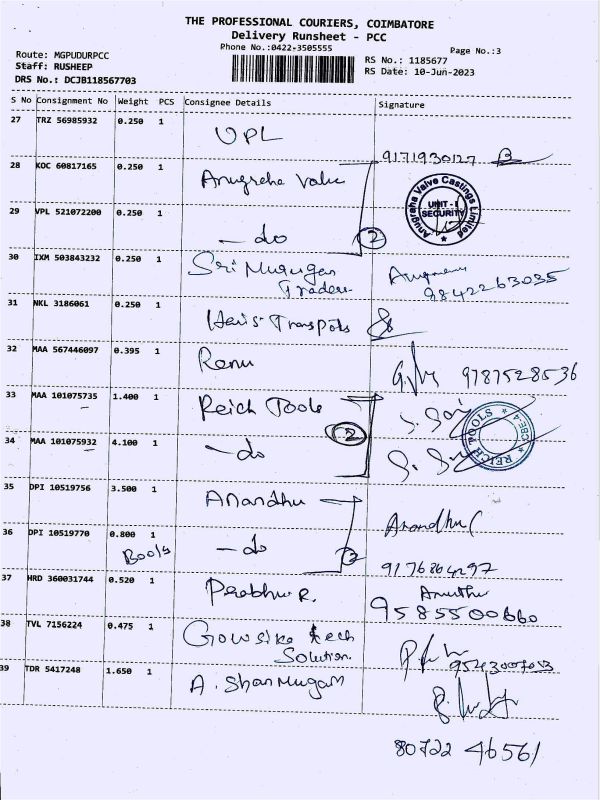 THE PROFESSIONAL COURIERS, COIMBATORE
Delivery Runsheet - PCC
Phone No.:0422-3505555
Page No.:3
Route: MGPUDURPCC
Staff: RUSHEEP
DRS No.: DCJB118567703
RS No.: 1185677
RS Date: 10-Jun-2023
S No Consignment No Weight PCS Consignee Details Signature
27 TRZ 56985932 0.250 1 UPL 9171930127
28 KOC 60817165 0.250 1 Anugraha Valve
Anugraha Valve Castings Limited
UNIT - I
SECURITY
29 VPL 521072200 0.250 1 - do 2
30 IXM 503843232 0.250 1 Sri Murugan
Traders 9842263035
31 NKL 3186061 0.250 1 Haris Transpots
32 MAA 567446097 0.395 1 Renu 9787528536
33 MAA 101075735 1.400 1 Reich Tools
REICH TOOLS * CBE-4 *
34 MAA 101075932 4.100 1 - do 2
35 DPI 10519756 3.500 1 Anandhu Anandhu
36 DPI 10519770 0.800 1 - do 2
Books 9176864297
37 HRD 360031744 0.520 1 Prabhu R.
9585500660
38 TVL 7156224 0.475 1 Gowsika tech
Solution. 9543007013
39 TDR 5417248 1.650 1 A. Shanmugam
80722 46561